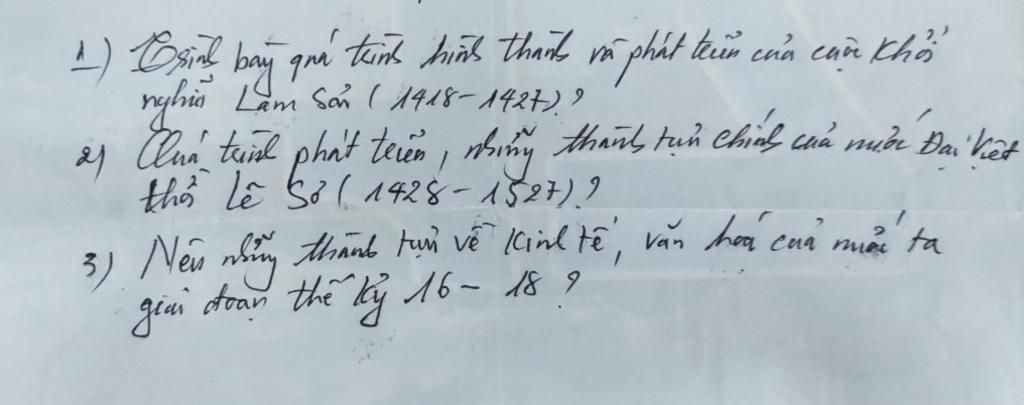 1) Trình bày quá trình hình thành và phát triển của cuộc khởi
nghĩa Lam Sơn (1418-1427)?
2) Quá trình phát triển, những thành tựu chính của nước Đại Việt
thời Lê Sơ (1428-1527)?
3) Nêu những thành tựu về kinh tế, văn hoá của nước ta
giai đoạn thế kỷ 16-18?